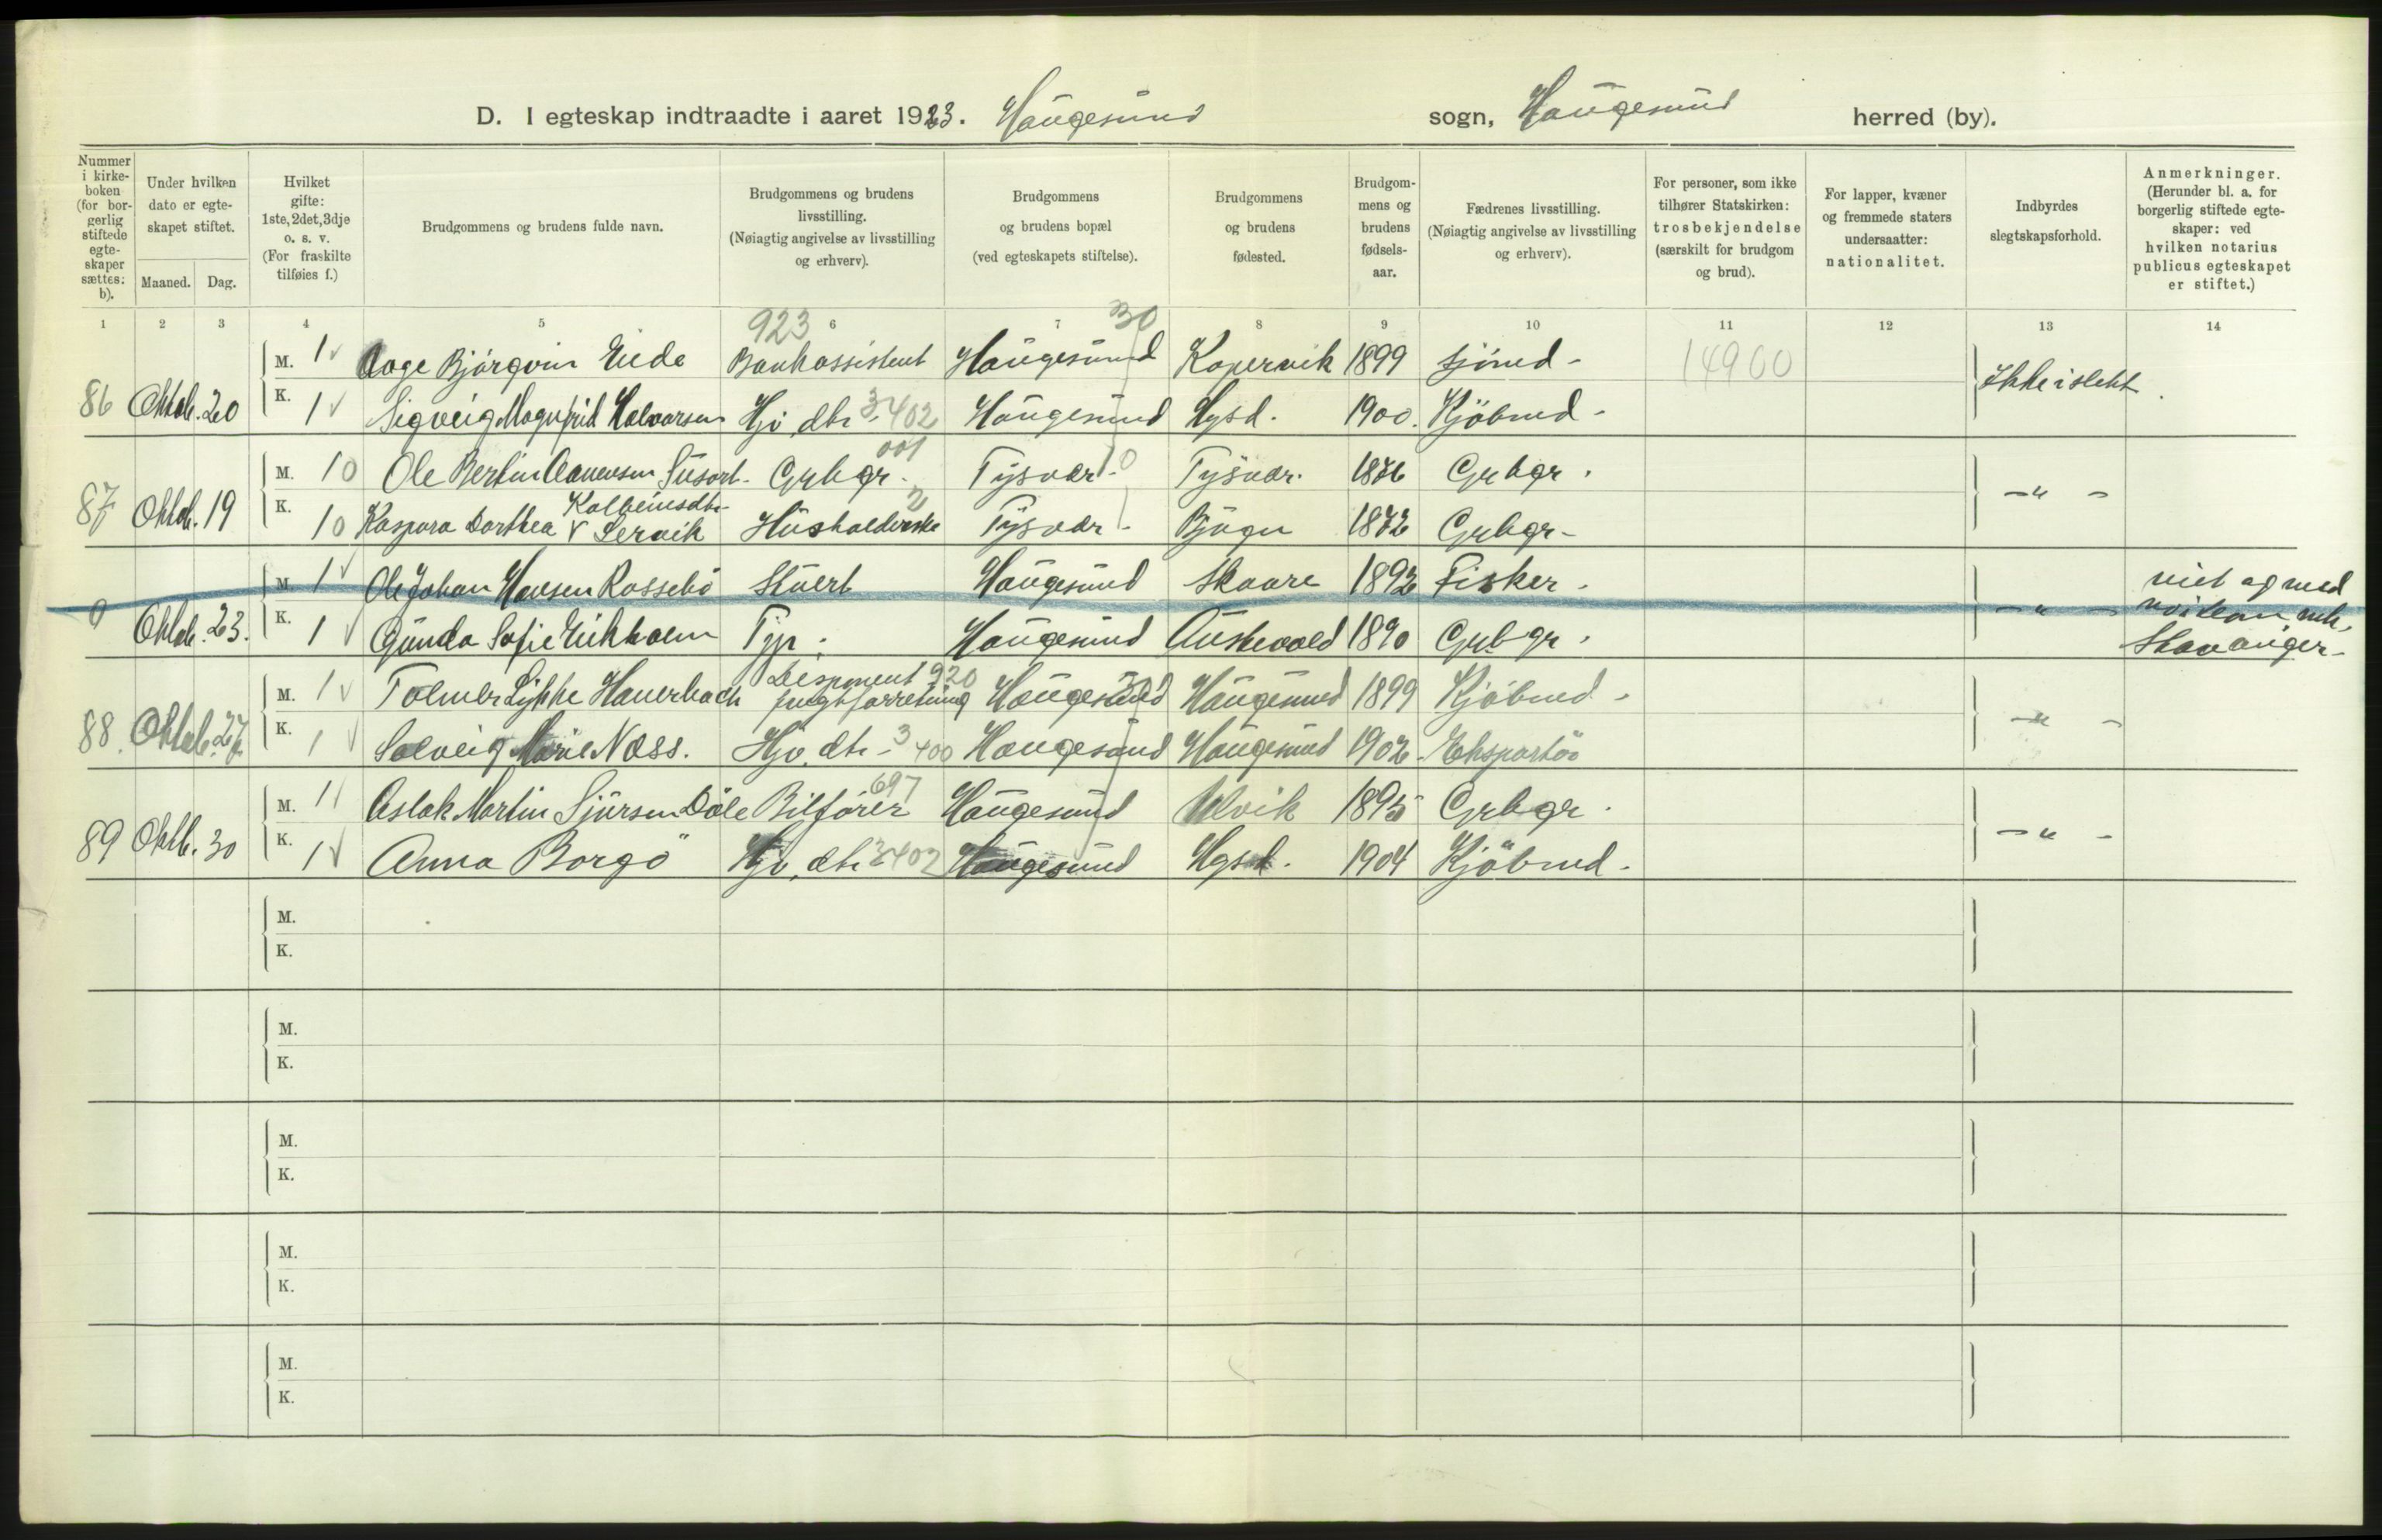 D. I egteskap indtraadte i aaret 1923. Haugesund sogn, Haugesund herred (by).
Nummer i kirke-boken (for bor-gerlig stiftede egte-skaper sættes: b).
Under hvilken dato er egte-skapet stiftet.
Maaned. Dag.
Hvilket gifte: 1ste, 2det, 3dje o. s. v. (For fraskilte tilføies f.)
Brudgommens og brudens fulde navn.
Brudgommens og brudens livsstilling. (Nøiagtig angivelse av livsstilling og erhverv).
Brudgommens og brudens bopæl (ved egteskapets stiftelse).
Brudgommens og brudens fødested.
Brudgom-mens og brudens fødsels-aar.
Fædrenes livsstilling. (Nøiagtig angivelse av livsstilling og erhverv).
For personer, som ikke tilhører Statskirken: trosbekjendelse (særskilt for brudgom og brud).
For lapper, kvæner og fremmede staters undersaatter: nationalitet.
Indbyrdes slegtskapsforhold.
Anmerkninger. (Herunder bl. a. for borgerlig stiftede egte-skaper: ved hvilken notarius publicus egteskapet er stiftet.)
1 2 3 4 5 6 7 8 9 10 11 12 13 14
923 30
M. 1 Aage Bjørgvin Eide Bankassistent Haugesund Kopervik 1899 Sjömd - 14900
86 Oktob. 20 Ikke i slekt.
K. 1 Sigveig Magnfrid Halvorsen Hj. dtr - 3402 Haugesund Hgsd. 1900. Kjöbmd -
001
M. 10 Ole Bertin Aanensen Susort - Grbgr. Tysvær. 0 Tysvær. 1876 Grbgr.
87 Oktob. 19 - " -
Kolbeinsdtr- 2
K. 10 Kaspara Dorthea V Lervik Husholderske Tysvær - Bjoga 1872 Grbgr -
M. 1 Ole Johan Hansen Rossebö Stuert Haugesund Skaare 1892 Fisker.
0 Oktob. 23. - " -
K. 1 Gunda Sofie Eikholm Tjp. Haugesund Austevold 1890 Grbgr.
viet og med
Stavanger -
Disponent 920
M. 1 Tolmer Lykke Hauerbach Haugesund Haugesund 1899 Kjöbmd -
88. Oktob. 27. - " -
K. 1 Solveig Marie Næss. Hjv. dtr - 3400 Haugesund Haugesund 1902 - Eksportör
697
M. 1 Aslak Martin Sjursen Dåle Bilförer Haugesund Ulvik 1895 Grbgr.
89 Oktb. 30 - " -
K. 1 Anna Borgö Hjv. dtr 3402 Haugesund Hgsd. 1904 Kjöbmd -
M.
K.
M.
K.
M.
K.
M.
K.
M.
K.